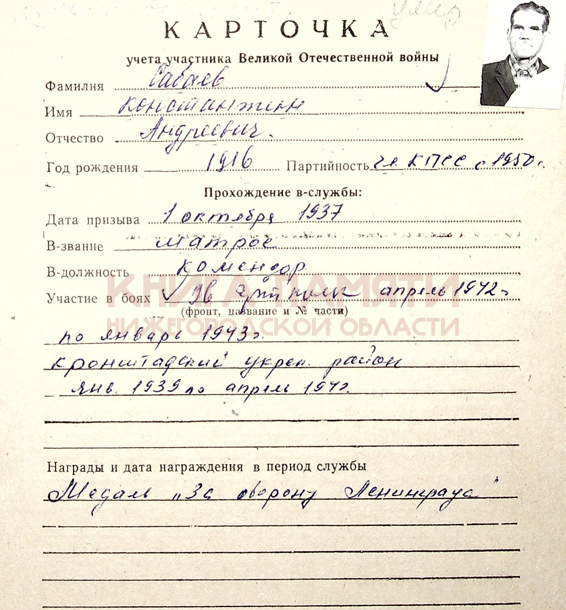 умер
КАРТОЧКА
учета участника Великой Отечественной войны
Фамилия Сабаев
Имя Константин
Отчество Андреевич.
Год рождения 1916 Партийность чл КПСС с 1950 г.
Прохождение в-службы:
Дата призыва 1 октября 1937
В-звание матрос
В-должность комендор
Участие в боях 96 Арт полк апрель 1942 г
(фронт, название и № части)
по январь 1943 г.
Кронштадский укреп. район
янв. 1939 по апрель
Награды и дата награждения в период службы
Медаль „За оборону Ленинграда"
КНИГА ПАМЯТИ
НИЖЕГОРОДСКОЙ ОБЛАСТИ